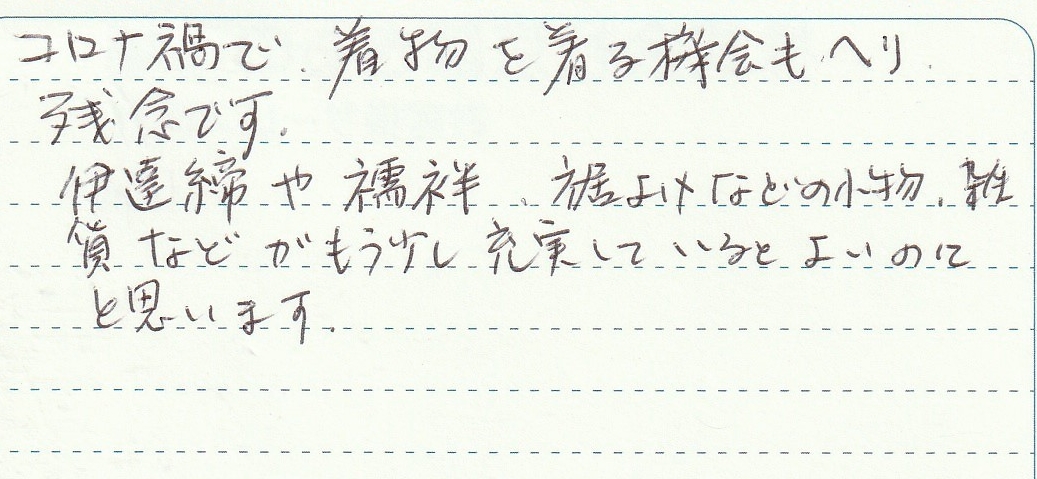 コロナ禍で、着物を着る機会もへり、
残念です。
伊達締や襦袢、裾よけなどの小物、雑
貨などがもう少し充実しているとよいのに
と思います。